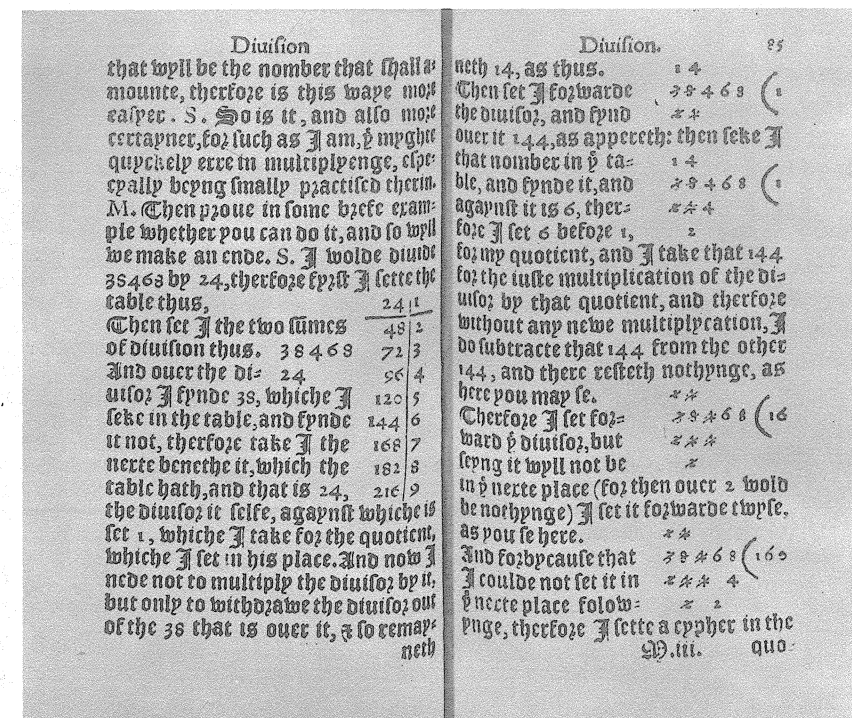 Diuiſion
that wyll be the nomber that ſhall a⸗
mounte, therfore is this waye more
eaſyer. S. So is it, and alſo more
certayner, for ſuch as I am, ẏ myghte
quyckely erre in multiplyenge, eſpe⸗
cyally beyng ſmally practiſed therin.
M. Then proue in ſome brefe exam⸗
ple whether you can do it, and ſo wyll
we make an ende. S. I wolde diuide
38468 by 24, therfore fyrſt I ſette the
table thus, 24|1
Then ſet I the two ſũmes 48|2
of diuiſion thus. 38468 72|3
And ouer the di⸗ 24 96|4
uiſor I fynde 38, whiche I 120|5
ſeke in the table, and fynde 144|6
it not, therfore take I the 168|7
nexte benethe it, which the 182|8
table hath, and that is 24, 216|9
the diuiſor it ſelfe, agaynſt whiche is
ſet 1, whiche I take for the quotient,
whiche I ſet in his place. And now I
nede not to multiply the diuiſor by it,
but only to withdrawe the diuiſor out
of the 38 that is ouer it, ⁊ ſo remay⸗
neth
Diuiſion. 85
neth 14, as thus. 14
Then ſet I forwarde 38468 (1
the diuiſor, and fynd 24
ouer it 144, as appereth: then ſeke I
that nomber in ẏ ta⸗ 14
ble, and fynde it, and 38468 (1
agaynſt it is 6, ther⸗ 244
fore I ſet 6 before 1, 2
for my quotient, and I take that 144
for the iuſte multiplication of the di⸗
uiſor by that quotient, and therfore
without any newe multiplycation, I
do ſubtracte that 144 from the other
144, and there reſteth nothynge, as
here you may ſe. 14
Therfore I ſet for⸗ 38468 (16
ward ẏ diuiſor, but 244
ſeyng it wyll not be 2
in ẏ nexte place (for then ouer 2 wold
be nothynge) I ſet it forwarde twyſe,
as you ſe here. 14
And forbycauſe that 38468 (160
I coulde not ſet it in 244 4
ẏ nexte place folow⸗ 2 2
ynge, therfore I ſette a cypher in the
M.iii. quo⸗